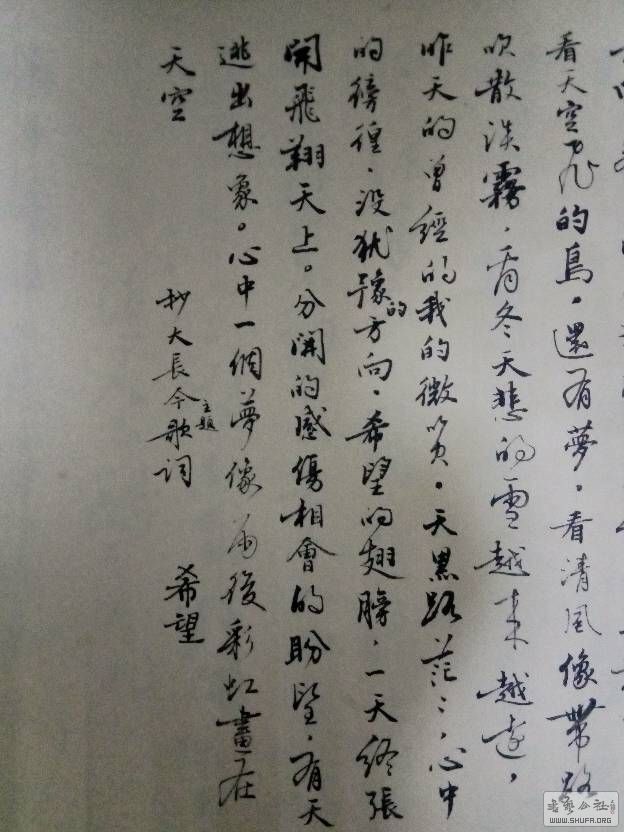 看天空飛的鳥。還有夢。看清風像帶路
吹散淡霧．看冬天悲的雪越來越遠，
昨天的曾經的我的微笑。天黑路茫〻．心中
的徬徨．沒猶豫的方向．希望的翅膀．一天終張
開飛翔天上。分開的感傷相會的盼望．有天
逃出想象。心中一個夢像雨後彩虹畫在
天空
抄大長今主題歌詞 希望
書法公社
WWW.SHUFA.ORG